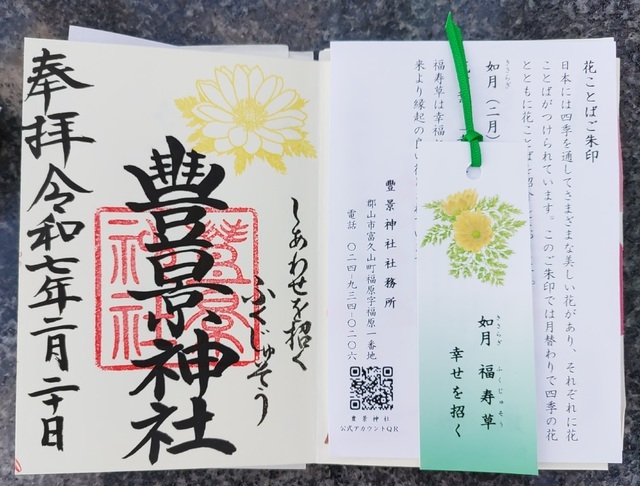 奉拝
令和七年二月二十日
豊景神社
しあわせを招く
ふくじゅそう
豊景神社
花ことばご朱印
日本には四季を通してさまざまな美しい花があり、それぞれに花
ことばがつけられています。このご朱印では月替わりで四季の花
とともに花ことばを
如月(二月)
きさらぎ
福寿草は幸福
来より縁起の良い
豊景神社社務所
郡山市富久山町福原字福原一番地
電話 〇二四-九三四-〇二〇六
豊景神社
公式アカウントQR
如月 福寿草
きさらぎ ふくじゅそう
幸せを招く